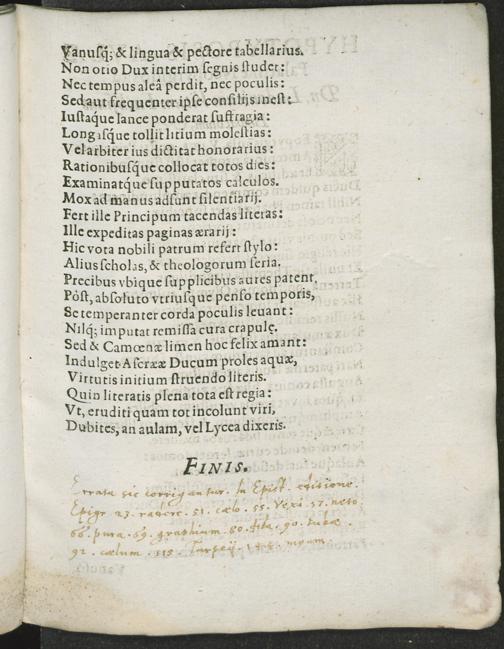 Vanusq́; & lingua & pectore tabellarius.
Non otio Dux interim segnis studet:
Nec tempus aleâ perdit, nec poculis:
Sed aut frequenter ipse consilijs inest:
Iustaque lance ponderat suffragia:
Longisque tollit litium molestias:
Vel arbiter ius dictitat honorarius:
Rationibusque collocat totos dies:
Examinatque supputatos calculos.
Mox ad manus adsunt silentiarij.
Fert ille Principum tacendas literas:
Ille expeditas paginas ærarij:
Hic vota nobili patrum refert stylo:
Alius scholas, & theologorum seria.
Precibus vbique supplicibus aures patent.
Pòst, absoluto vtriusque penso temporis,
Se temperanter corda poculis leuant:
Nilq́; imputat remissa cura crapulę.
Sed & Camœnæ limen hoc felix amant:
Indulget Ascrææ Ducum proles aquæ,
Virtutis initium struendo literis.
Quin literatis plena tota est regia:
Vt, eruditi quam tot incolunt viri,
Dubites, an aulam, vel Lycea dixeris.
FINIS.
Errata sic corrigantur. In Epist. editione
Epigr 23. radere. 51. cælo. 55. Vexi. 57. neto
66. pura. 69. graphium. 80. 90. tubæ
92. cælum. 115. Tarpeij.